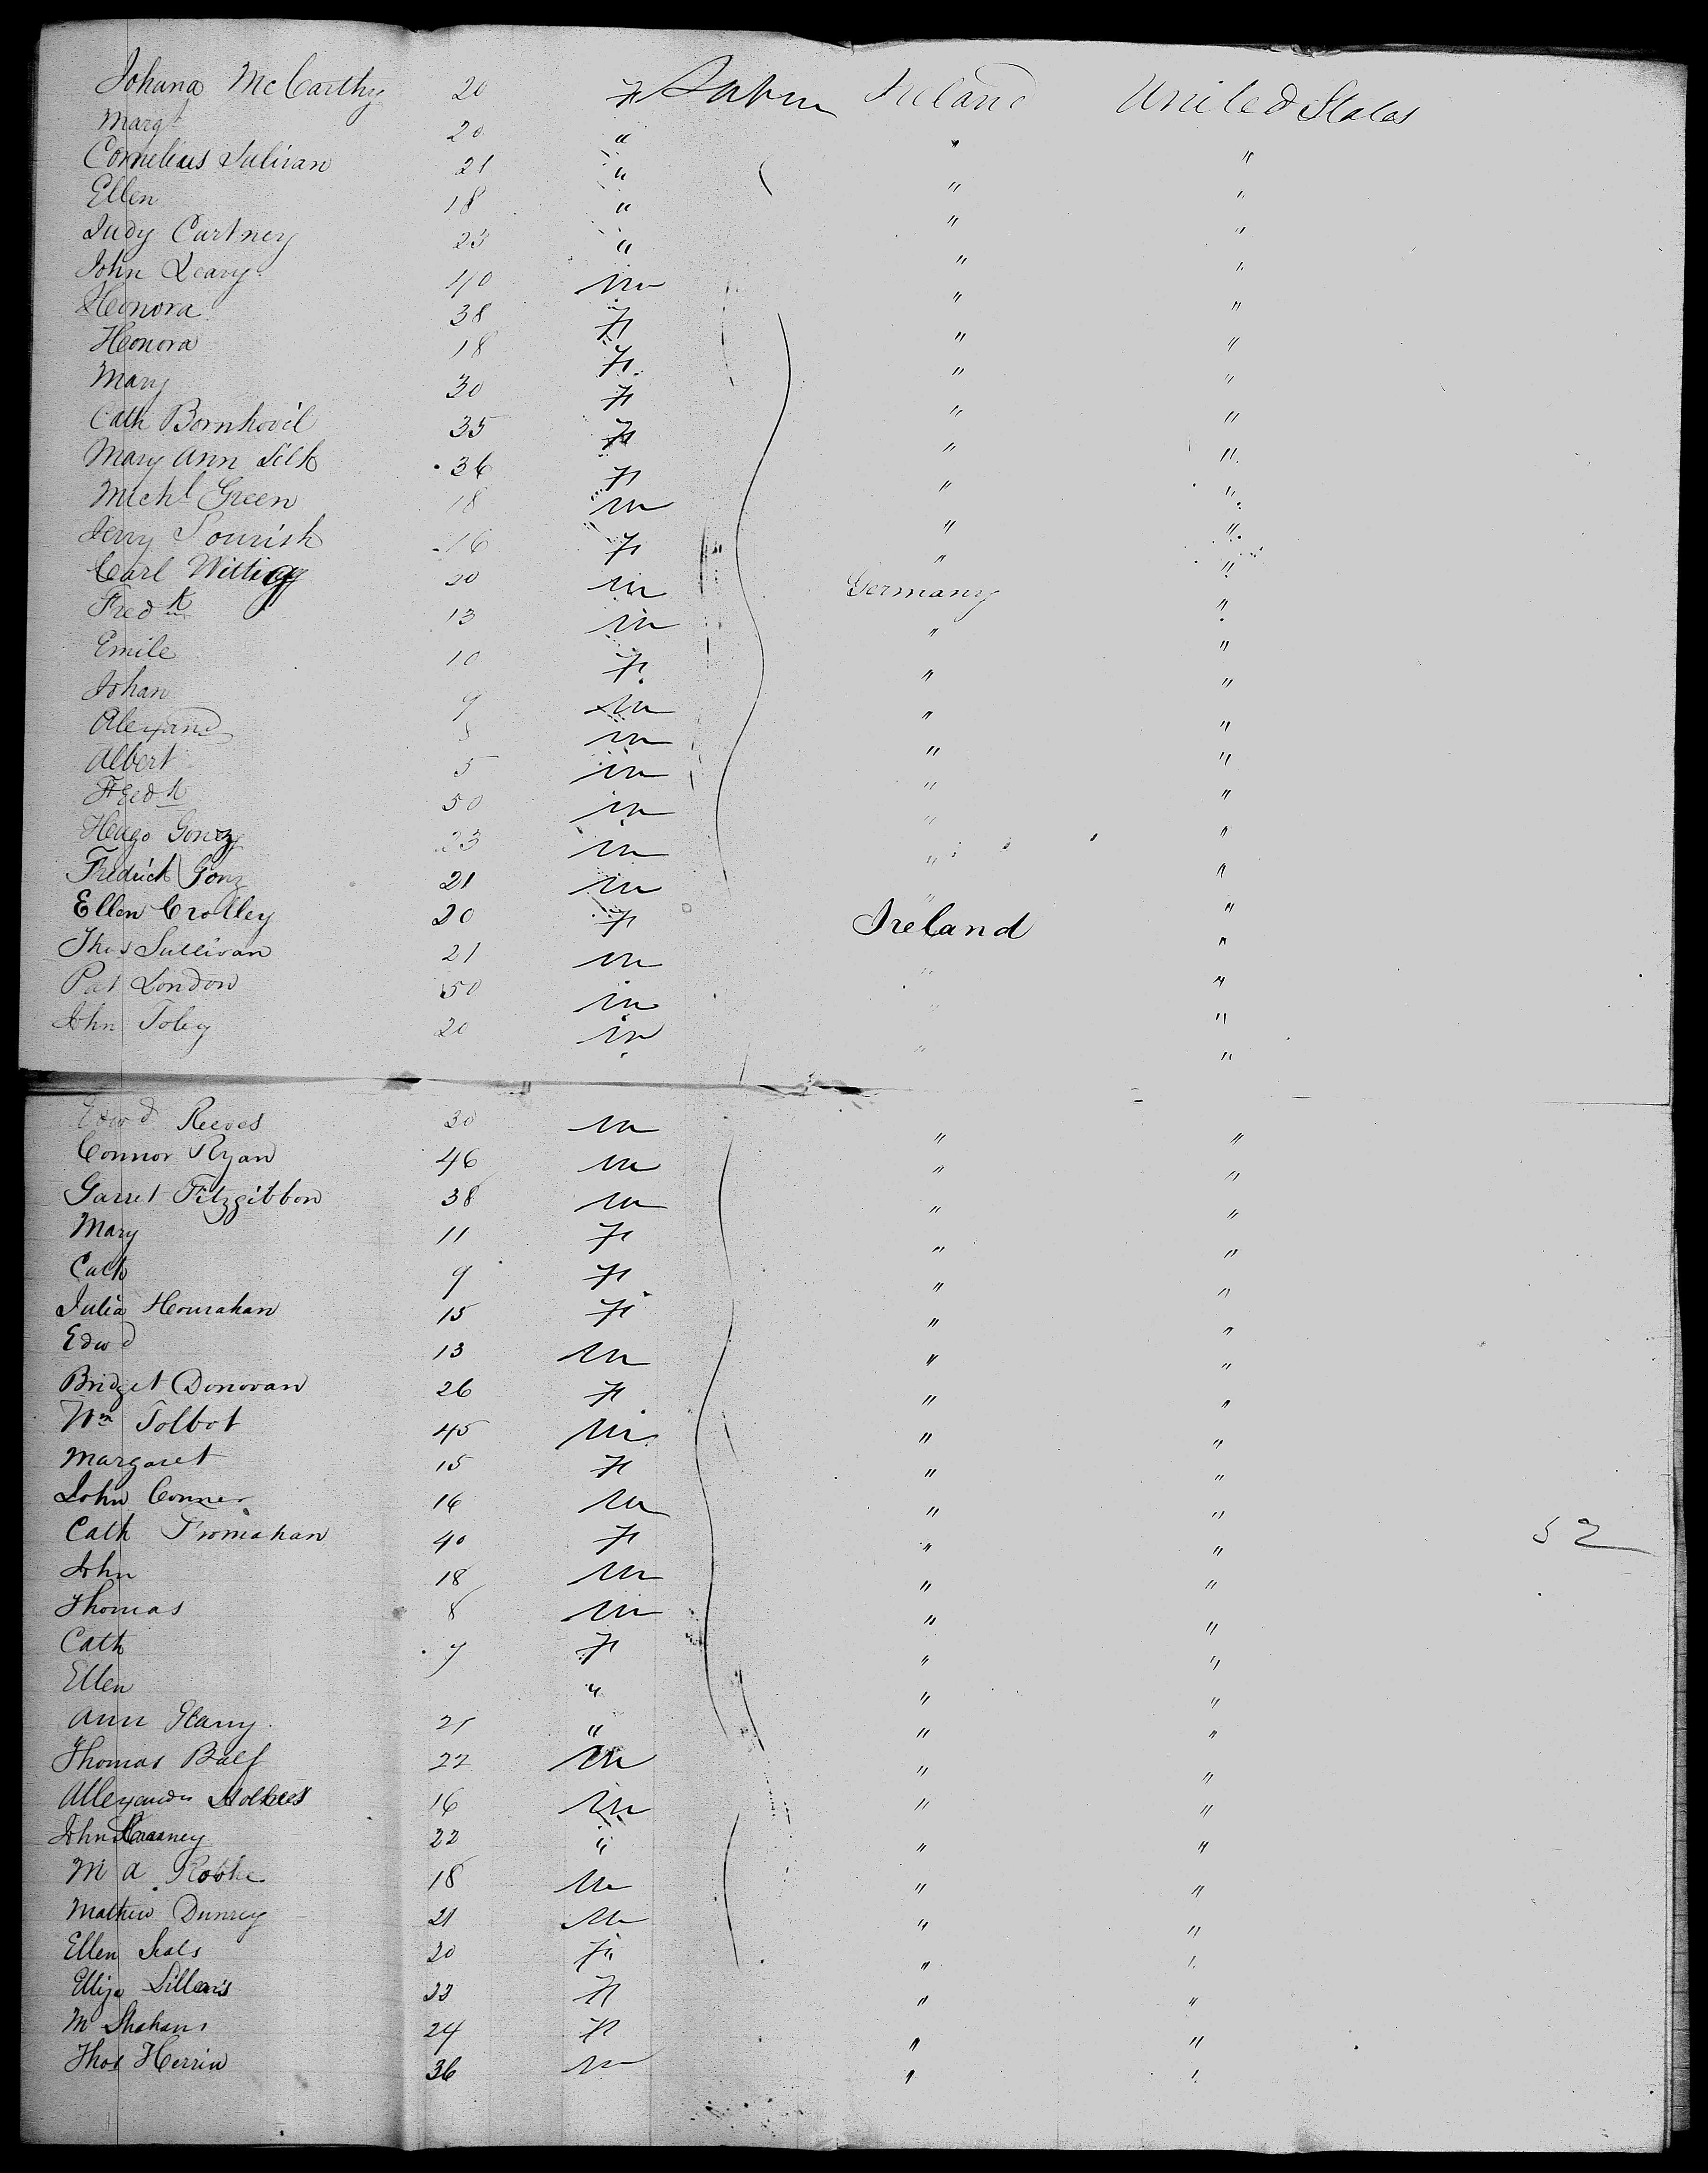 Johana McCarthy 20 F Ireland United States
Margt 20 " " "
Cornelius Sulivan 21 " " "
Ellen 18 " " "
Judy Cartney 23 " " "
John Leary 40 m " "
Honora 38 F " "
Honora 18 F " "
Mary 30 F " "
Cath Bornhovil 35 F " "
Mary Ann Silk 36 F " "
Michl Green 18 m " "
Jerry 16 F " "
Carl Wittig 30 m Germany "
Fredk 13 m " "
Emile 10 F " "
Johan 9 m " "
Alexand m " "
Albert 5 m " "
Fredk 50 m " "
Hugo Gonz 23 m " "
Fredrick Gonz 21 m " "
Ellen Crolley 20 F Ireland "
Thos Sullivan 21 m " "
Pat London 50 m " "
John Foley 20 m " "
Edwd Reeves 30 m " "
Connor Ryan 46 m " "
Garret Fitzgibbon 38 m " "
Mary 11 F " "
Cath 9 F " "
Julia Hourahan 15 F " "
Edwd 13 m " "
Bridget Donovan 26 F " "
Wm Tolbot 45 m " "
Margaret 15 F " "
John Conner 16 m " "
Cath Fromahan 40 F " " 52
John 18 m " "
Thomas 8 m " "
Cath 7 F " "
Ellen " " "
Ann 21 " " "
Thomas Balf 22 m " "
Allexander 16 m " "
John 22 " " "
M A Roohe 18 m " "
Mathew Dunrey 21 m " "
Ellen Seals 20 F " "
Eliza 22 F " "
M Shahan 24 F " "
Thos Herrin 36 m " "